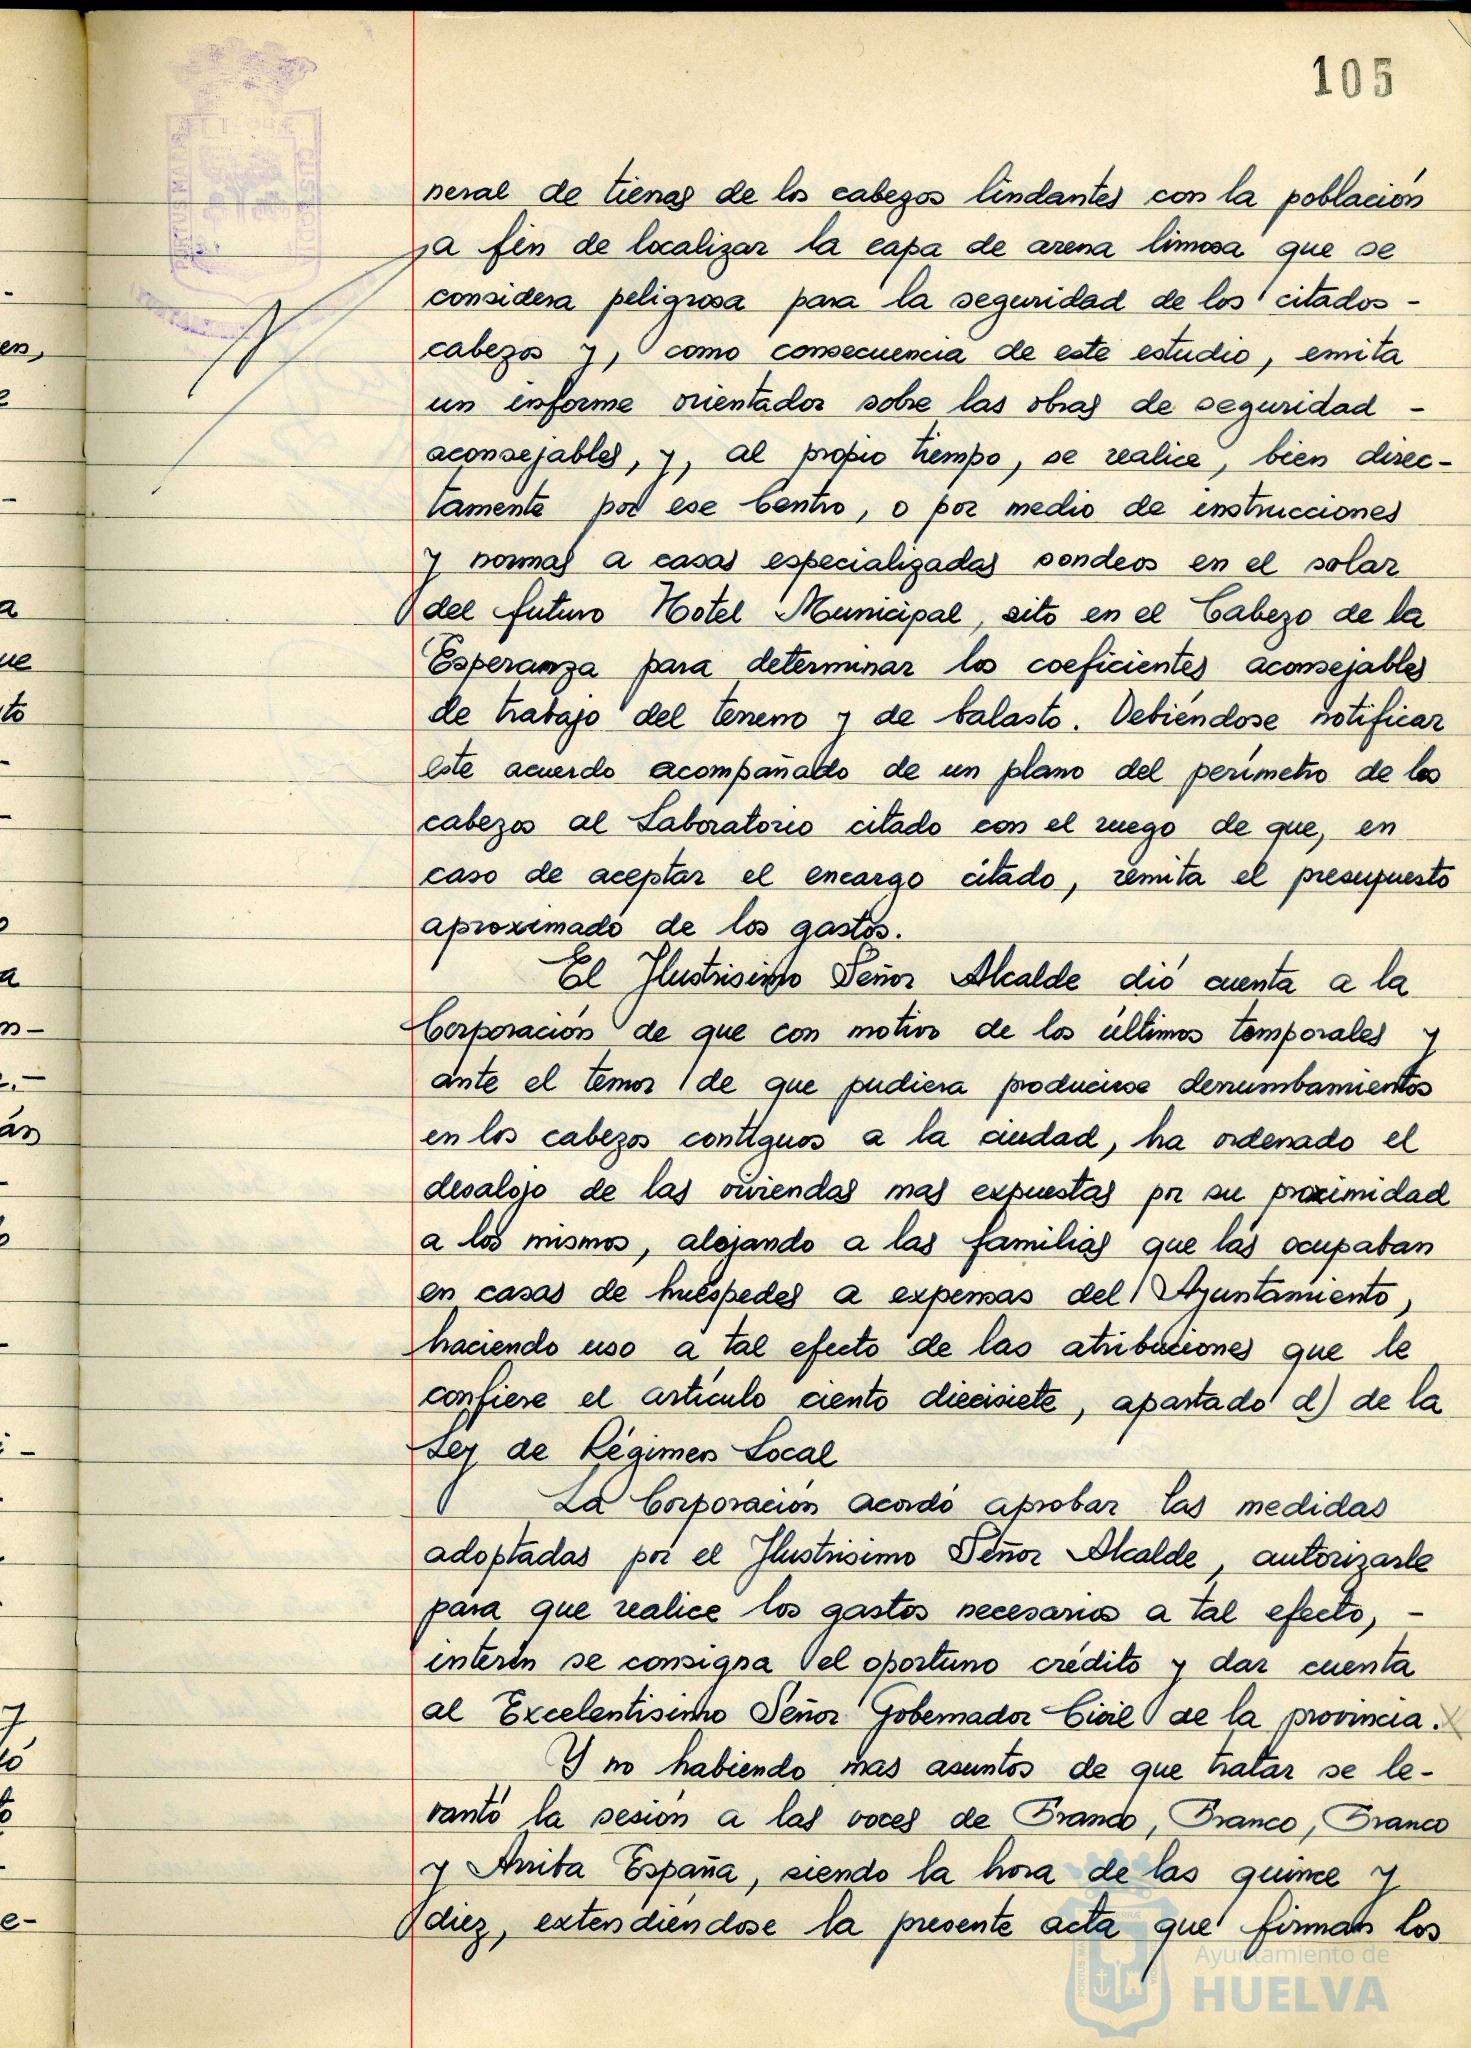 105
neral de tierras de los cabezos lindantes con la población
a fin de localizar la capa de arena limosa que se
considera peligrosa para la seguridad de los citados -
cabezos y, como consecuencia de este estudio, emita
un informe orientador sobre las obras de seguridad -
aconsejables, y, al propio tiempo, se realice, bien direc-
tamente por ese Centro, o por medio de instrucciones
y normas a casas especializadas sondeos en el solar
del futuro Hotel Municipal, sito en el Cabezo de la
Esperanza para determinar los coeficientes aconsejables
de trabajo del terreno y de balasto. Debiéndose notificar
este acuerdo acompañado de un plano del perímetro de los
cabezos al Laboratorio citado con el ruego de que, en
caso de aceptar el encargo citado, remita el presupuesto
aproximado de los gastos.
El Ilustrisimo Señor Alcalde dió cuenta a la
Corporación de que con motivo de los últimos temporales y
ante el temor de que pudiera producirse derrumbamientos
en los cabezos contiguos a la ciudad, ha ordenado el
desalojo de las viviendas mas expuestas por su proximidad
a los mismos, alojando a las familias que las ocupaban
en casas de huéspedes a expensas del Ayuntamiento,
haciendo uso a tal efecto de las atribuciones que le
confiere el artículo ciento diecisiete, apartado d) de la
Ley de Régimen Local
La Corporación acordó aprobar las medidas
adoptadas por el Ilustrisimo Señor Alcalde, autorizarle
para que realice los gastos necesarios a tal efecto, -
interín se consigna el oportuno crédito y dar cuenta
al Excelentisimo Señor Gobernador Civil de la provincia.
Y no habiendo mas asuntos de que tratar se le-
vantó la sesión a las voces de Franco, Franco, Franco
y Arriba España, siendo la hora de las quince y
diez, extendiéndose la presente acta que firman los
Ayuntamiento de
HUELVA